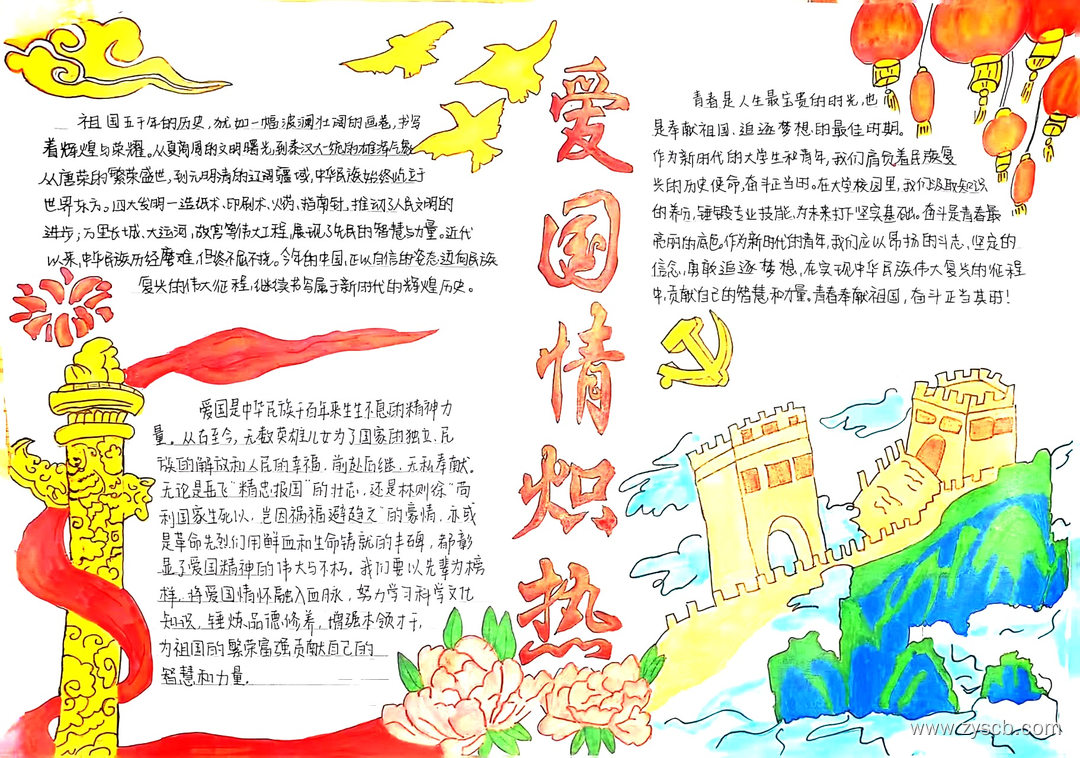 爱国情炽热
祖国五千年的历史,犹如一幅波澜壮阔的画卷,书写
着辉煌与荣耀。从夏商周的文明曙光,到秦汉大统的雄浑气象
从唐荣的繁荣盛世,到元明清的辽阔疆域,中华民族始终屹于
世界东方。四大发明一造纸术、印刷术、火药、指南针,推动了人民文明的
进步;万里长城、大运河,故宫等伟大工程,展现了先民的智慧与力量。近代
以来,中华民族历经磨难,但终不屈不挠。今年的中国,正以自信的姿态迈向民族
复兴的伟大征程,继续书写属于新时代的辉煌历史。
爱国是中华民族千百年来生生不息的精神力
量。从古至今,无数英雄儿女为了国家的独立、民
族的解放和人民的幸福,前赴后继、无私奉献。
无论是岳飞“精忠报国”的壮志,还是林则徐“苟
利国家生死以,岂因祸福避趋之”的豪情,亦或
是革命先烈们用鲜血和生命铸就的丰碑,都彰
显了爱国精神的伟大与不朽。我们要以先辈为榜
样,将爱国情怀融入血脉,努力学习科学文化
知识,锤炼品德修养,增强本领才干,
为祖国的繁荣富强贡献自己的
智慧和力量。
青春是人生最宝贵的时光,也
是奉献祖国、追逐梦想的最佳时期。
作为新时代的大学生和青年,我们肩负着民族复
兴的历史使命,奋斗正当时。在大学校园里,我们汲取知识
的养份,锤锻专业技能,为未来打下坚实基础。奋斗是青春最
亮丽的底色作为新时代的青年,我们应以昂扬的斗志、坚定的
信念,勇敢追逐梦想,在实现中华民族伟大复兴的征程
中,贡献自己的智慧和力量。青春奉献祖国,奋斗正当其时!
www.zyscb.com